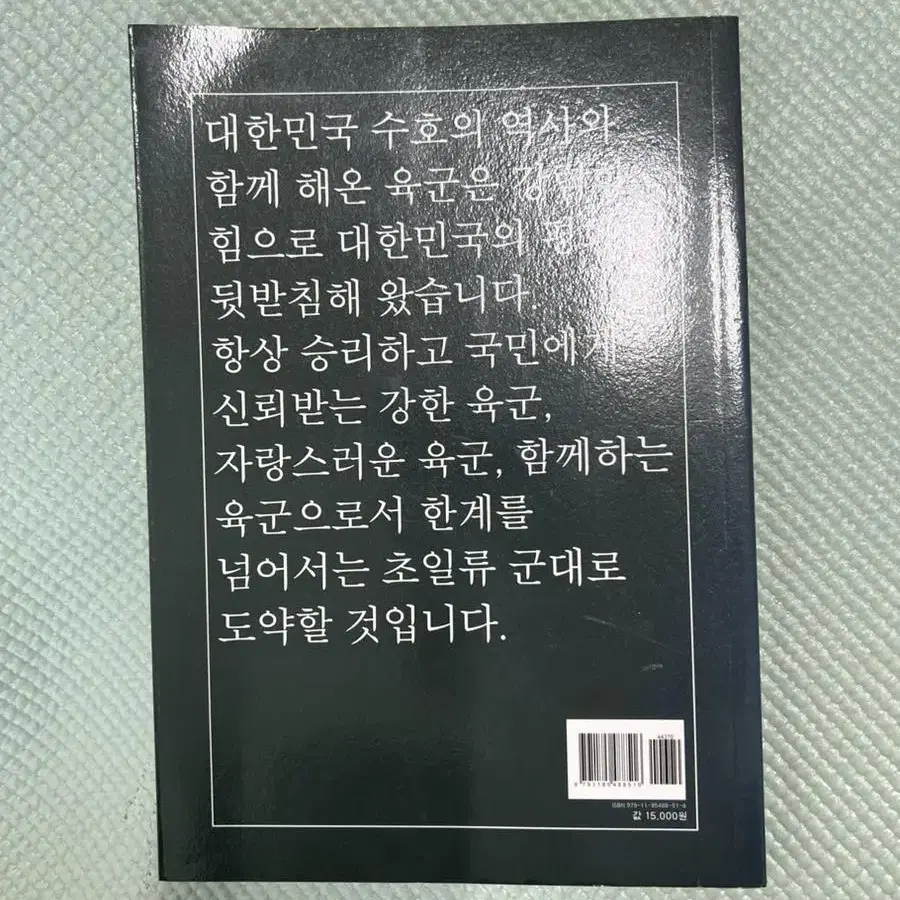 대한민국 수호의 역사와
함께 해온 육군은
힘으로 대한민국의
뒷받침해 왔습니다.
항상 승리하고 국민에게
신뢰받는 강한 육군,
자랑스러운 육군, 함께하는
육군으로서 한계를
넘어서는 초일류 군대로
도약할 것입니다.
44370
ISBN 979-11-85488-51-6
값 15,000원